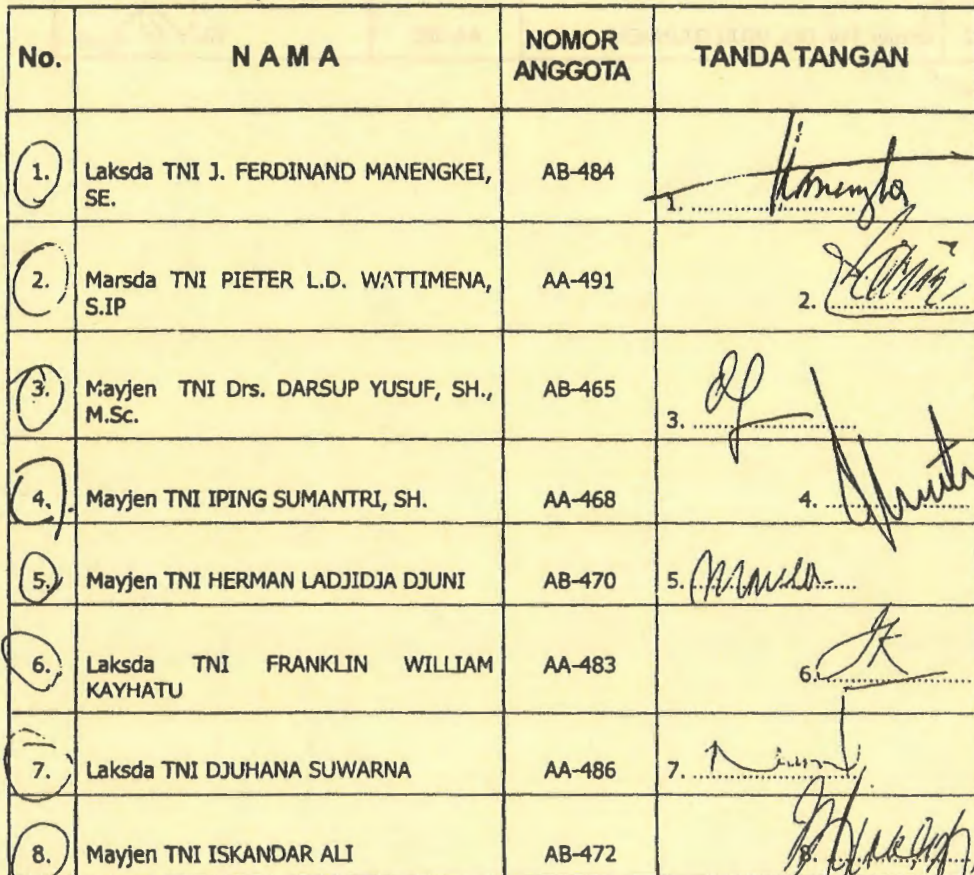 No. N A M A NOMOR ANGGOTA TANDA TANGAN
1. Laksda TNI J. FERDINAND MANENGKEI, SE. AB-484 1. ....................
2. Marsda TNI PIETER L.D. WATTIMENA, S.IP AA-491 2. ....................
3. Mayjen TNI Drs. DARSUP YUSUF, SH., M.Sc. AB-465 3. ....................
4. Mayjen TNI IPING SUMANTRI, SH. AA-468 4. ....................
5. Mayjen TNI HERMAN LADJIDJA DJUNI AB-470 5. ....................
6. Laksda TNI FRANKLIN WILLIAM KAYHATU AA-483 6. ....................
7. Laksda TNI DJUHANA SUWARNA AA-486 7. ....................
8. Mayjen TNI ISKANDAR ALI AB-472 8. ....................